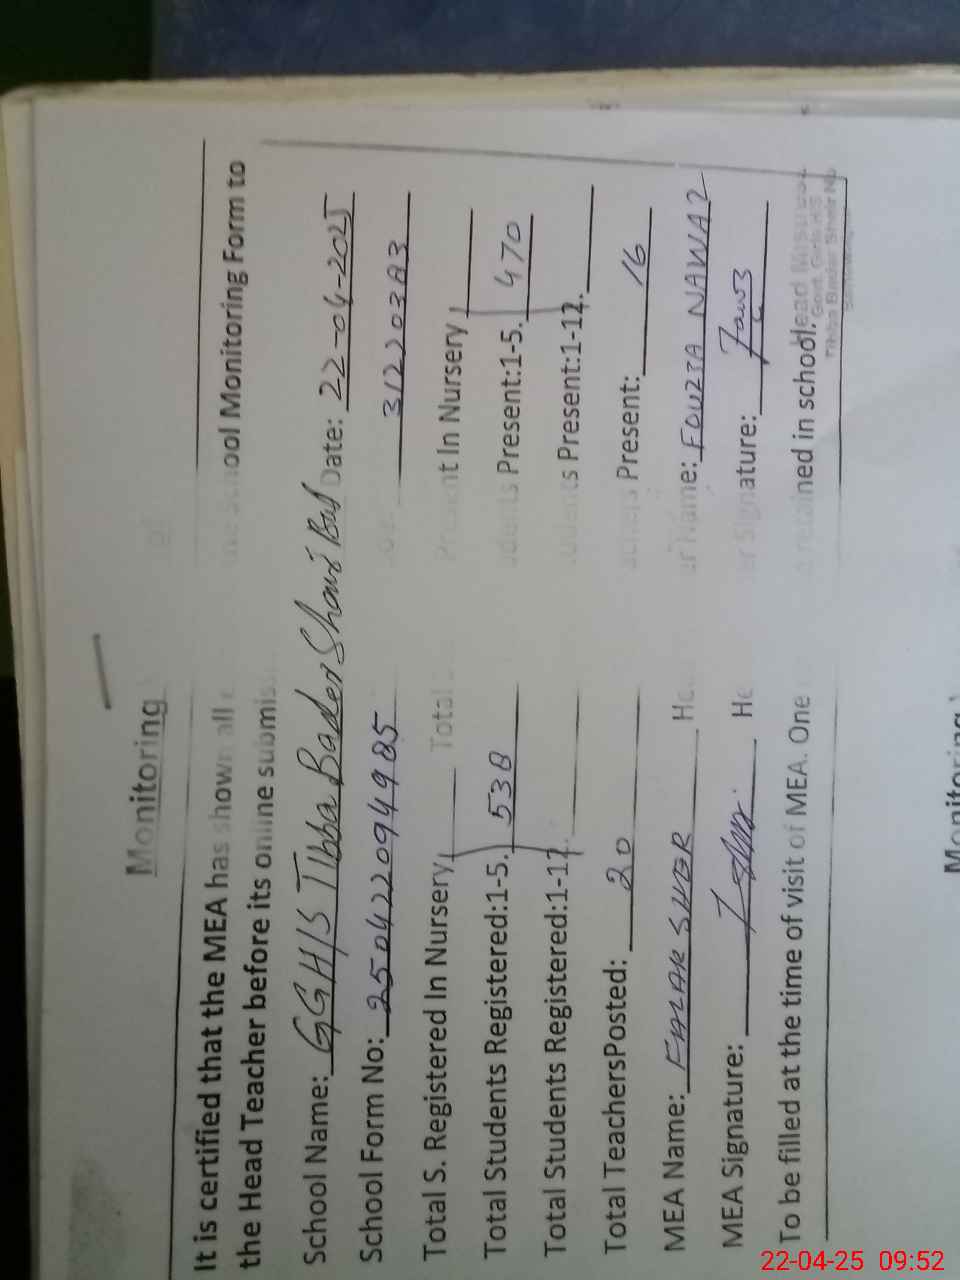 Monitoring
It is certified that the MEA has shown all School Monitoring Form to
the Head Teacher before its online submiss
School Name: GGHS Tibba Bader Sharif Date: 22-04-2025
School Form No: 250422094985 31220383
Total S. Registered In Nursery Total Present In Nursery
Total Students Registered:1-5. 538 Students Present:1-5. 470
Total Students Registered:1-12. Students Present:1-12.
Total TeachersPosted: 20 Teachers Present: 16
MEA Name: Name: FOUZIA NAWAZ
MEA Signature: He er Signature:
To be filled at the time of visit of MEA. One retained in school.
Govt. Girls H/S
Monitoring
22-04-25 09:52